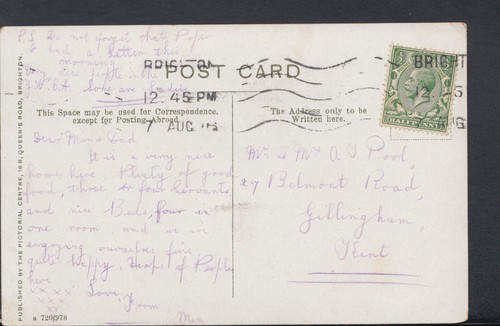 P.S. Do not forget that Paper
I had a letter this
morning
very nice people in the
Y.W.C.A. some are Ladies
BRIGHTON
12.45 PM
7 AUG
POST CARD
This Space may be used for Correspondence,
except for Posting Abroad.
The Address only to be
Written here.
HALFPENNY
BRIGHT
Dear Mum & Dad
It is a very nice
home here. Plenty of good
food, three or four servants
and nice Beds, four in
one room, and we're
enjoying ourselves fine
quite happy. Heaps of People
here
Love
from
x x x x x
Mr. & Mrs A J Pool,
29 Belmont Road,
Gillingham,
Kent
PUBLISHED BY THE PICTORIAL CENTRE, 16B, QUEEN'S ROAD, BRIGHTON.
a 720/978